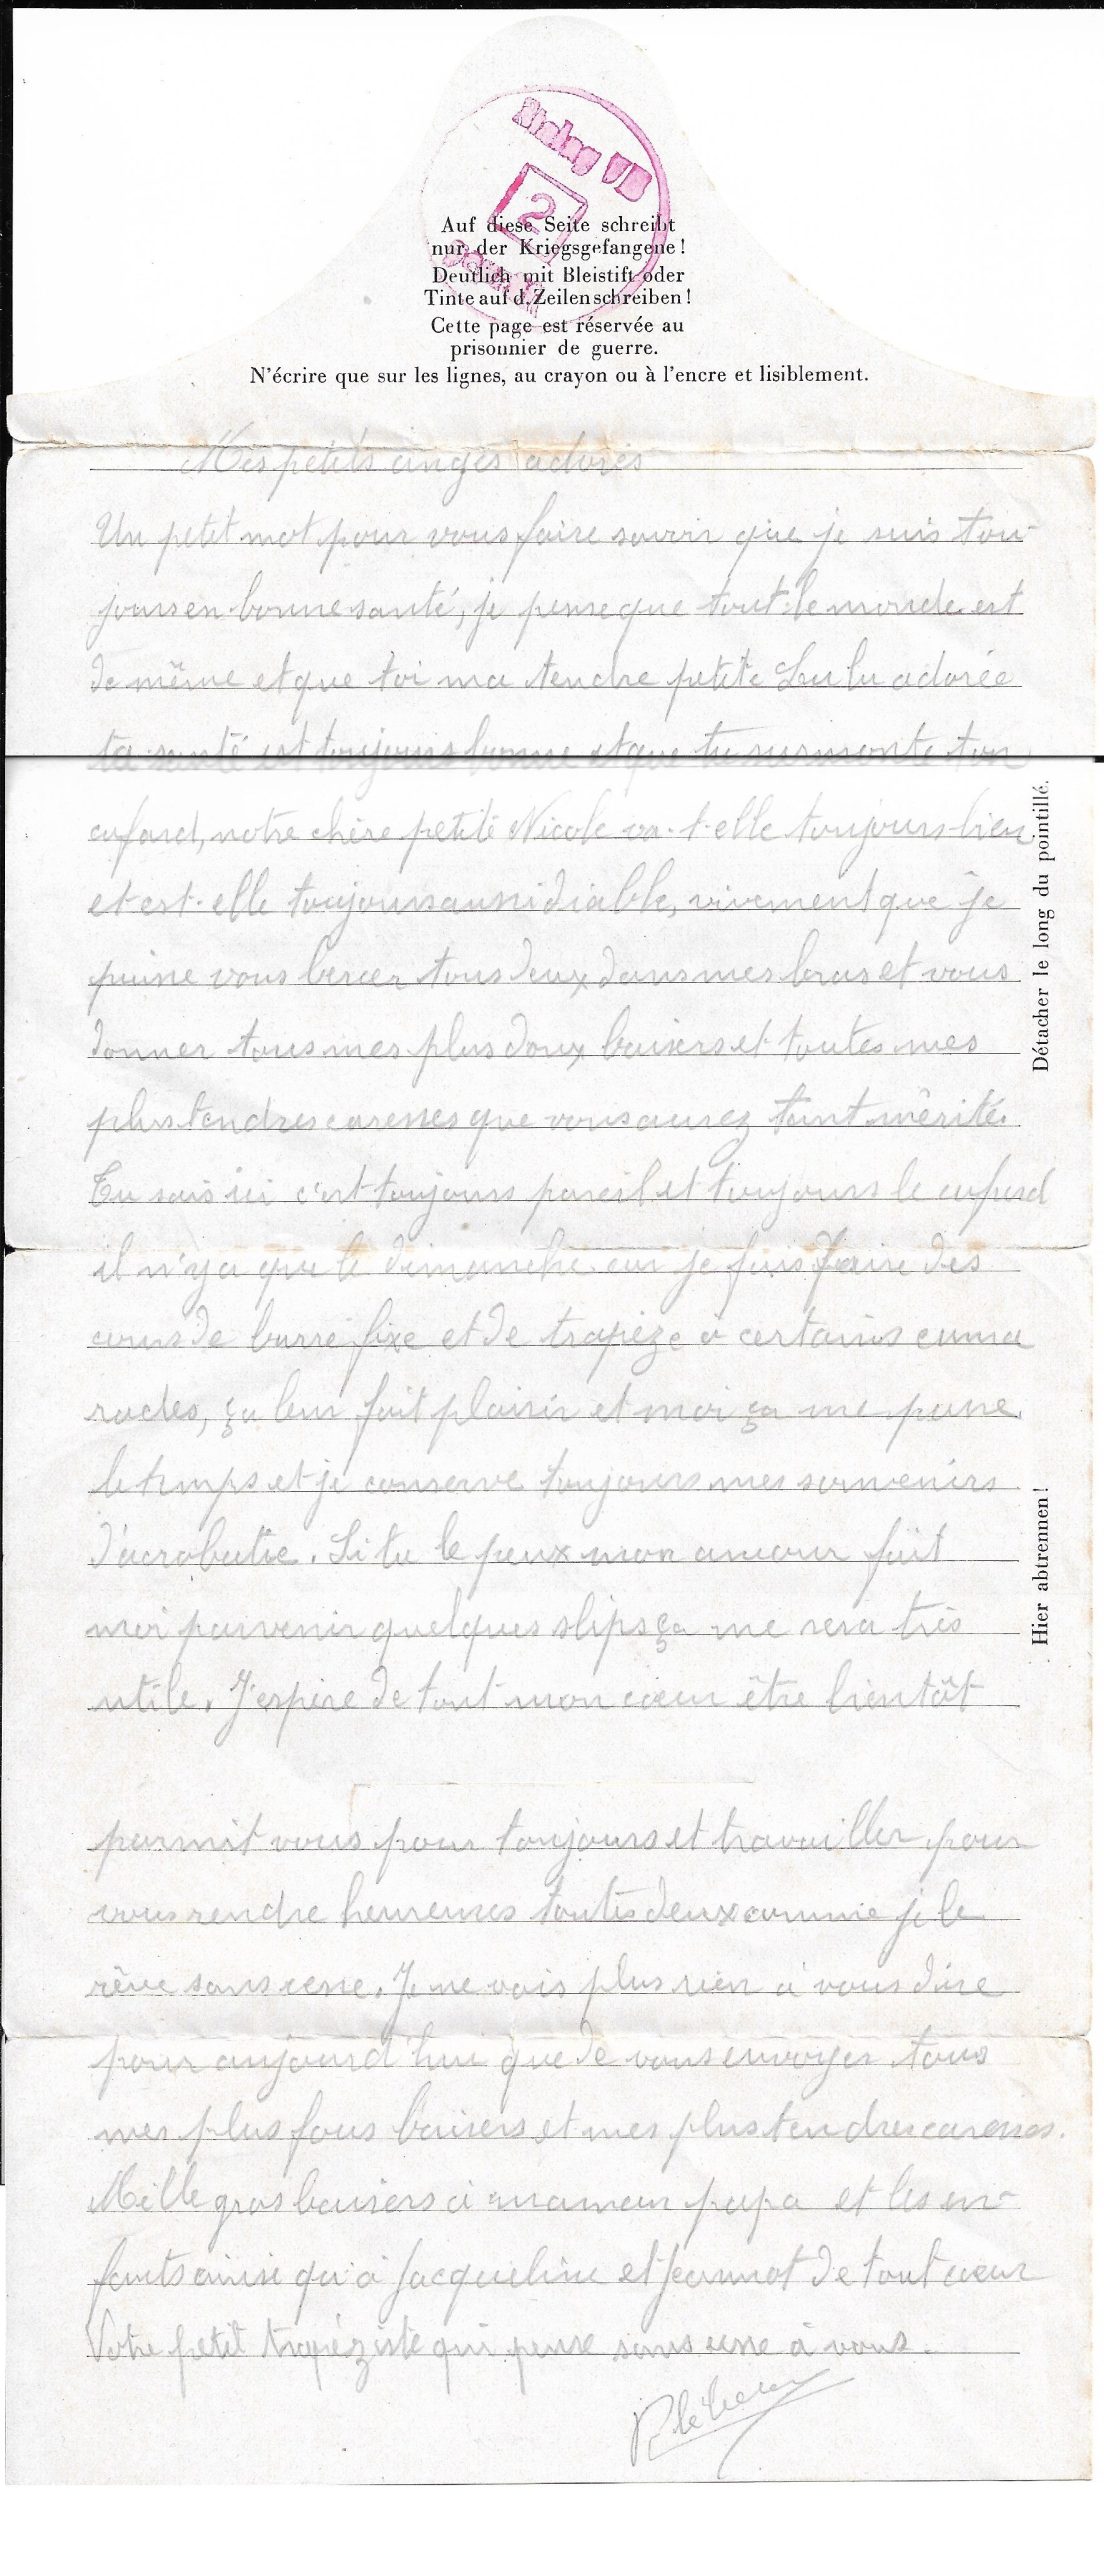 Stalag VIB
2
Auf diese Seite schreibt
nur der Kriegsgefangene!
Deutlich mit Bleistift oder
Tinte auf d. Zeilen schreiben!
Cette page est réservée au
prisonnier de guerre.
N'écrire que sur les lignes, au crayon ou à l'encre et lisiblement.
Mes petits anges adorés
Un petit mot pour vous faire savoir que je suis tou-
jours en bonne santé, je pense que tout le monde est
de même et que toi ma tendre petite Lulu adorée
ta santé est toujours bonne et que tu surmonte ton
cafard, notre chère petite Nicole va-t-elle toujours bien
et est-elle toujours aussi diable, vivement que je
puisse vous bercer tous deux dans mes bras et vous
donner tous mes plus doux baisers et toutes mes
plus tendres caresses que vous aurez tant mérité.
Tu sais ici c'est toujours pareil et toujours le cafard
il n'y a que le dimanche car je fais faire des
cours de barre fixe et de trapèze à certains cama
rades, ça leur fait plaisir et moi ça me passe
le temps et je conserve toujours mes souvenirs
d'acrobatie. Si tu le peux mon amour fait
moi parvenir quelques slips ça me sera très
utile. J'espère de tout mon cœur être bientôt
parmit vous pour toujours et travailler pour
vous rendre heureuses toutes deux comme je le
rêve sans cesse. Je ne vois plus rien à vous dire
pour aujourd'hui que de vous envoyer tous
mes plus fous baisers et mes plus tendres caresses.
Mille gros baisers à maman papa et les en-
fants ainsi qu'à Jacqueline et Jeannot de tout cœur
Votre petit trapéziste qui pense sans cesse à vous.
Détacher le long du pointillé.
Hier abtrennen!